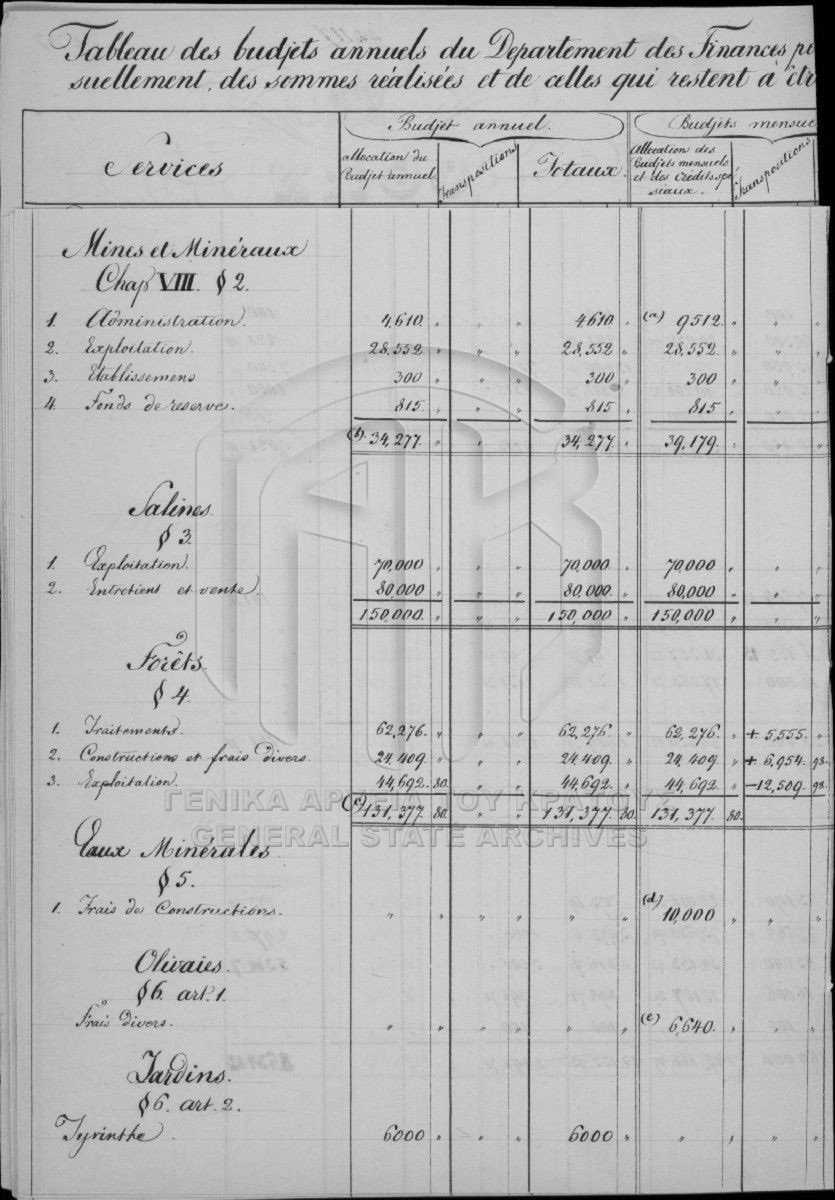 Tableau des budjets annuels du Departement des Finances
suellement, des sommes réalisées et de celles qui restent à
Services
Budjet annuel.
Budjets
allocation du Budjet annuel
Transpositions
Totaux.
Allocation des Budjets mensuels et des Crédits spé siaux.
Transpositions
Mines et Minéraux
Chap VIII. § 2.
1. Administration. 4,610. " " " 4610. " (a) 9512. " " "
2. Exploitation. 28,552 " " " 28,552 " 28,552. " " "
3. Etablissemens 300 " " " 300 " 300 " " "
4. Fonds de reserve. 815. " " " 815 " 815 " " "
(b) 34,277. " " 34,277. " 39,179. " " "
Salines.
§ 3.
1. Exploitation. 70,000 " " " 70,000 " 70,000 " " "
2. Entretiens et vente. 80,000 " " " 80,000. " 80,000 " " "
150,000. " " " 150,000. " 150,000 " " "
Forêts.
§ 4.
1. Traitements. 62,276. " " " 62,276. " 62,276. " + 5,555. "
2. Constructions et frais divers. 24,409. " " " 24,409. " 24,409. " + 6,954. 98.
3. Exploitation. 44,692. 80. " " 44,692. " 44,692 " -12,509. 98.
(c) 131,377. 80. " " 131,377. 80. 131,377. 80.
ΓΕΝΙΚΑ ΑΡΧΕΙΑ ΤΟΥ ΚΡΑΤΟΥΣ
GENERAL STATE ARCHIVES
Eaux Minérales
§ 5.
1. Frais de Constructions. " " " " " " (d) 10,000 " " "
Olivaies.
§ 6. art. 1.
Frais divers. " " " " " " (e) 6,640. " " "
Jardins.
§ 6. art. 2.
Tyrinthe. 6000 " " " 6000 " " " " "